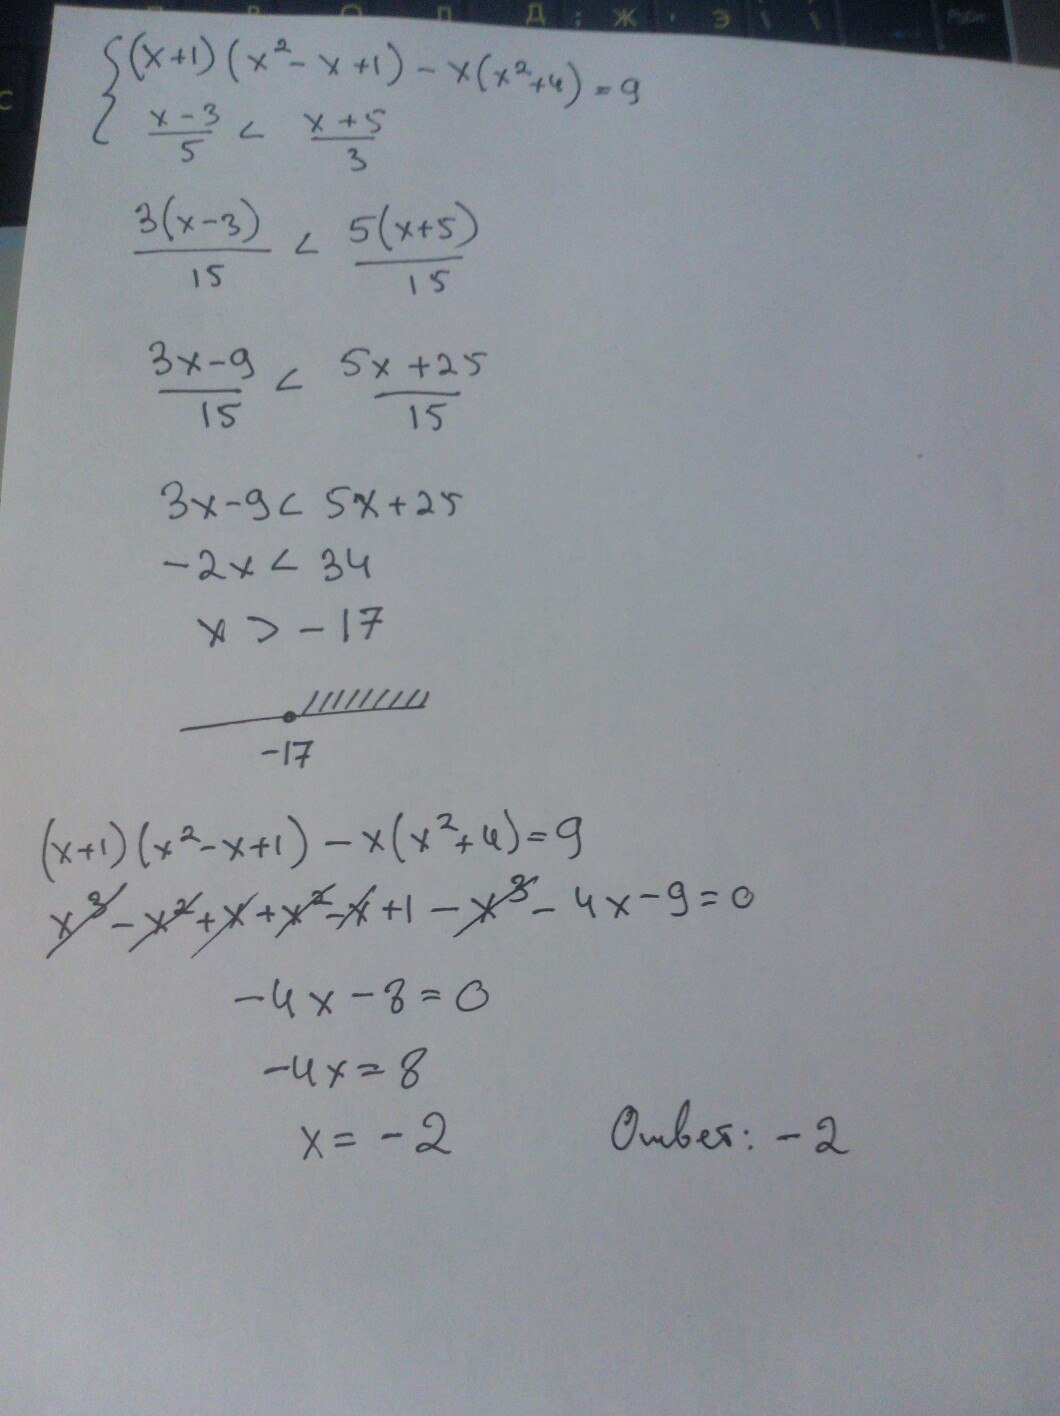 Д ; Ж . Э \ \
С
{ (x+1)(x²-x+1) - x(x²+4) = 9
(x-3)/5 < (x+5)/3
3(x-3)/15 < 5(x+5)/15
(3x-9)/15 < (5x+25)/15
3x-9 < 5x+25
-2x < 34
x > -17
-17
(x+1)(x²-x+1) - x(x²+4) = 9
x³ - x² + x + x² - x + 1 - x³ - 4x - 9 = 0
-4x - 8 = 0
-4x = 8
x = -2
Ответ: -2